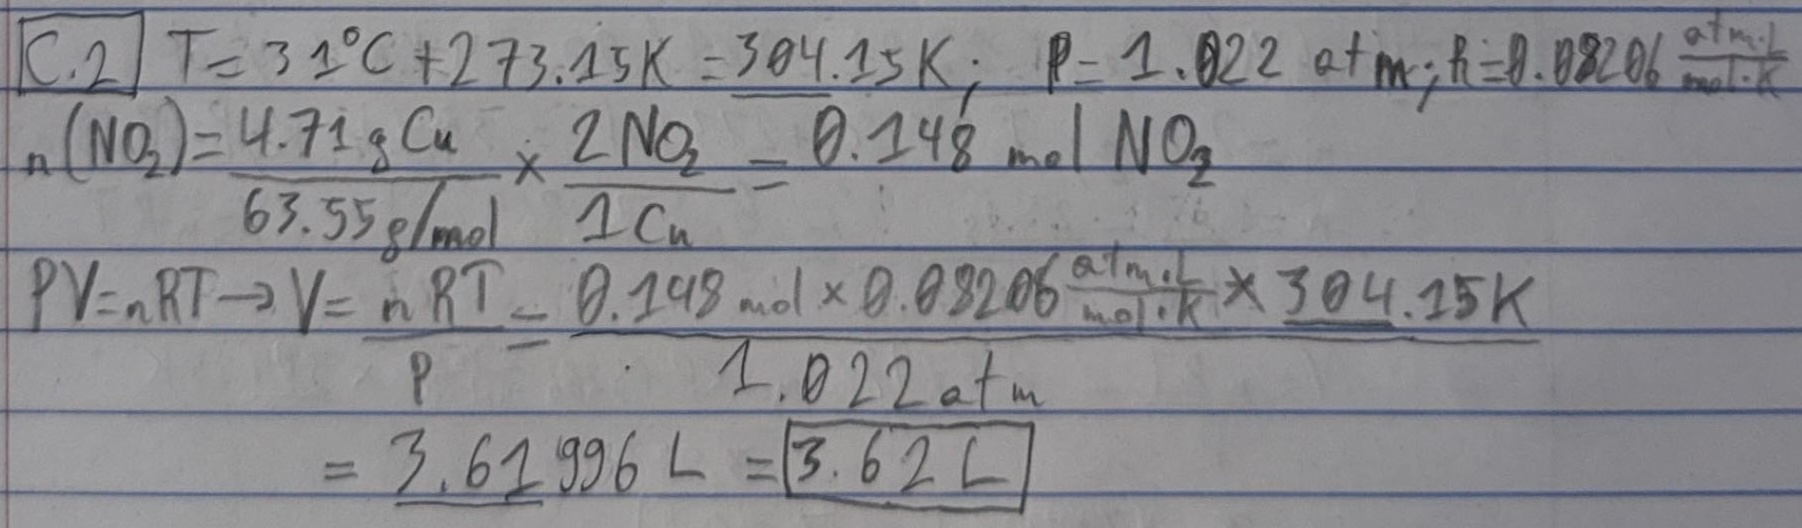 C.2 T = 31°C + 273.15K = 304.15K; P = 1.022 atm; R = 0.08206 atm·L/mol·K
n(NO₂) = 4.71 g Cu / 63.55 g/mol × 2NO₂ / 1Cu = 0.148 mol NO₂
PV = nRT → V = nRT / P = 0.148 mol × 0.08206 atm·L/mol·K × 304.15K / 1.022 atm
= 3.61996 L = 3.62 L